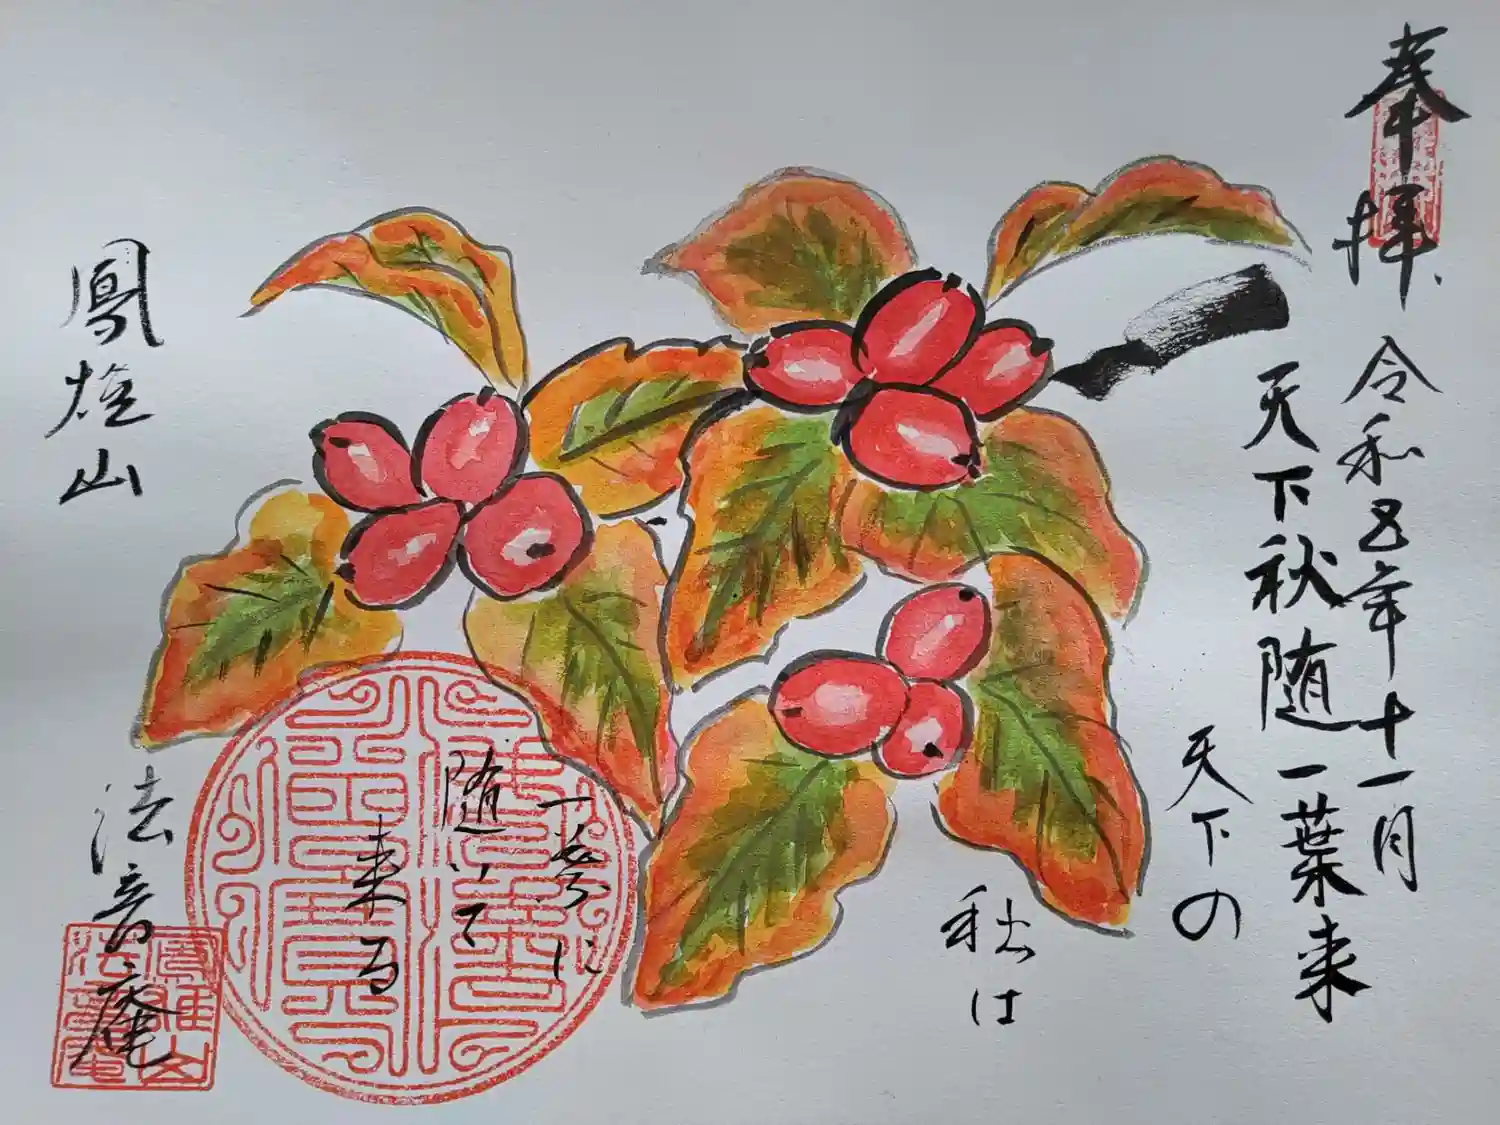 奉拝
令和五年十一月
天下秋随一葉来
天下の
秋は
一葉に
随いて
来る
鳳雄山
法音庵
鳳雄山
法音庵